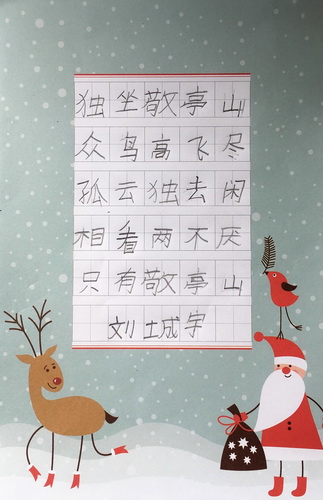 独坐敬亭山
众鸟高飞尽
孤云独去闲
相看两不厌
只有敬亭山
刘城宇